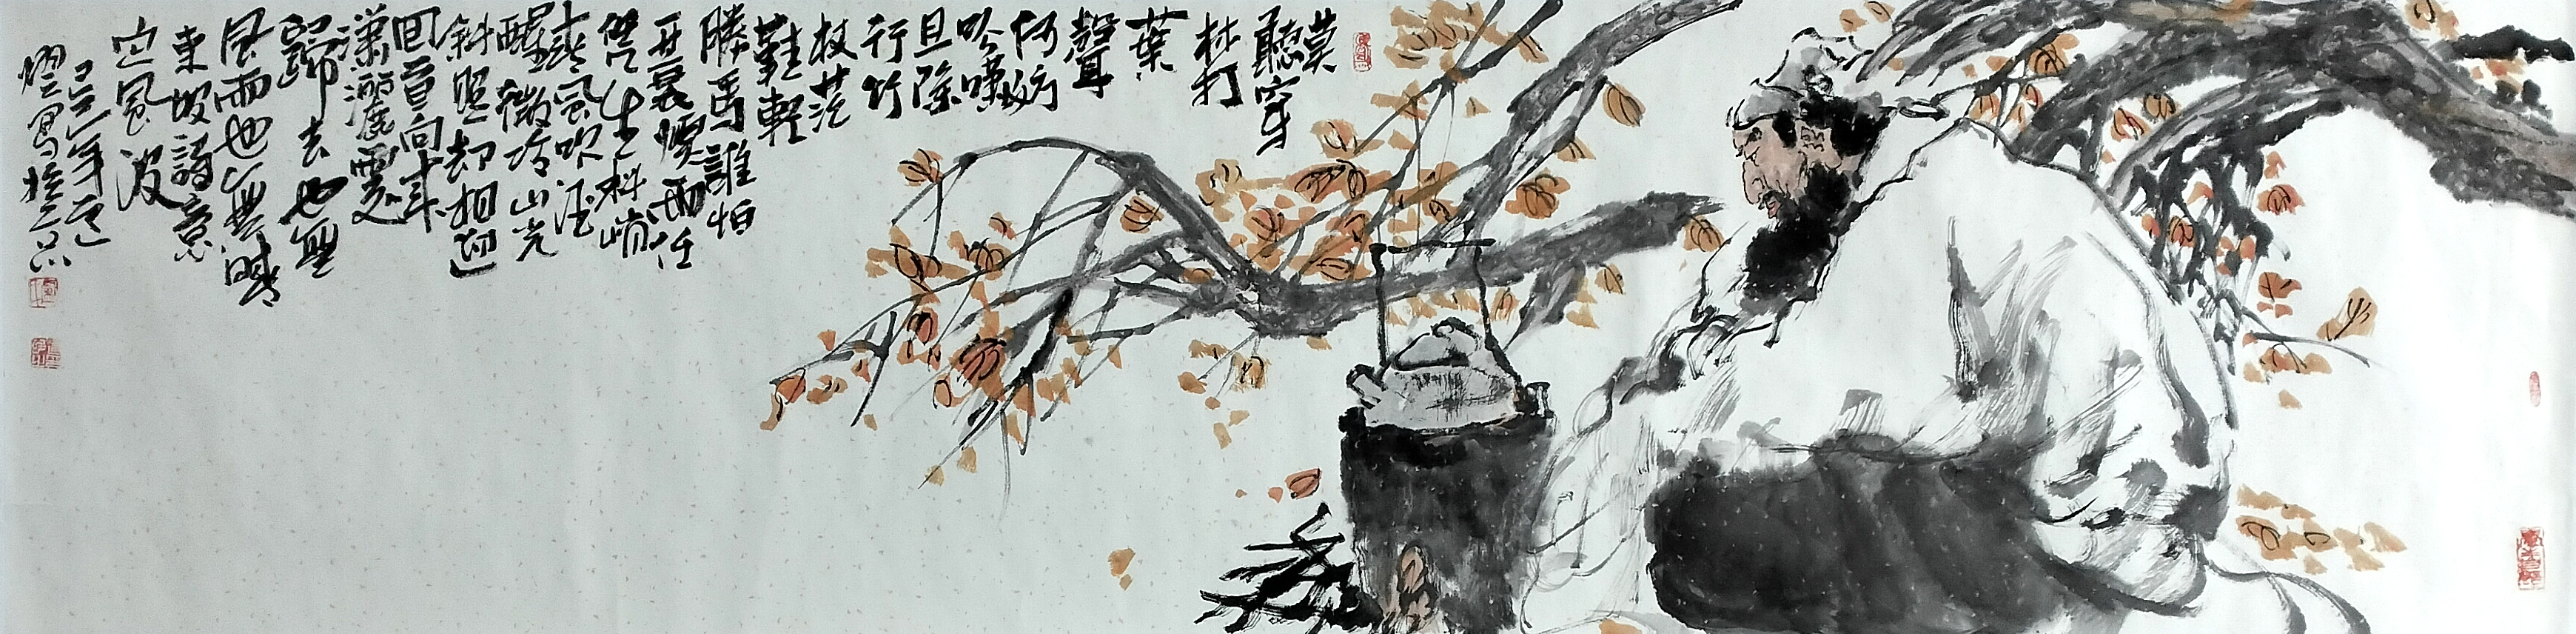 莫
聽穿
林打
葉
聲
何妨
吟嘯
且除
行竹
杖芒
鞋輕
勝馬誰怕
蓑煙雨任
生料峭
春風吹酒
醒微冷山
斜照却相迎
回首向来
瀟灑處
歸去也無
風雨也無晴
東坡詩意
定風波
年
寫於